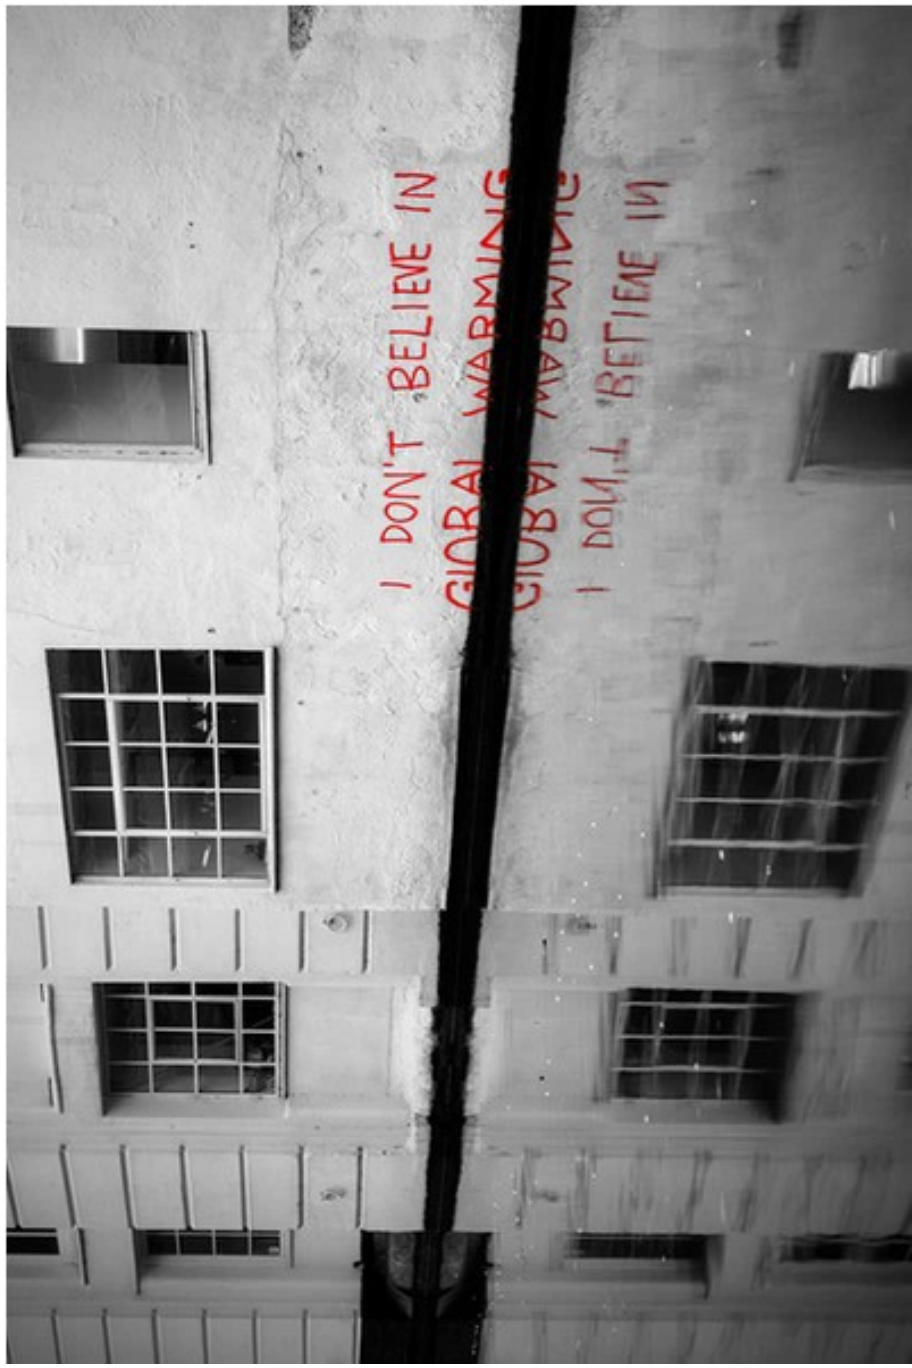 I DON'T BELIEVE IN
GlOBAl WARMING